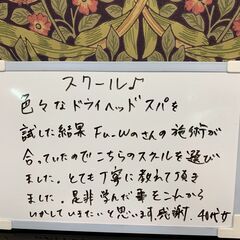 スクール♪
色々なドライヘッドスパを
試した結果 Fu-Wのさんの施術が
合っていたのでこちらのスクールを選び
ました。とても丁寧に教えて頂き
ました。是非学んだ事をこれから
いかしていきたいと思います。感謝。40代女